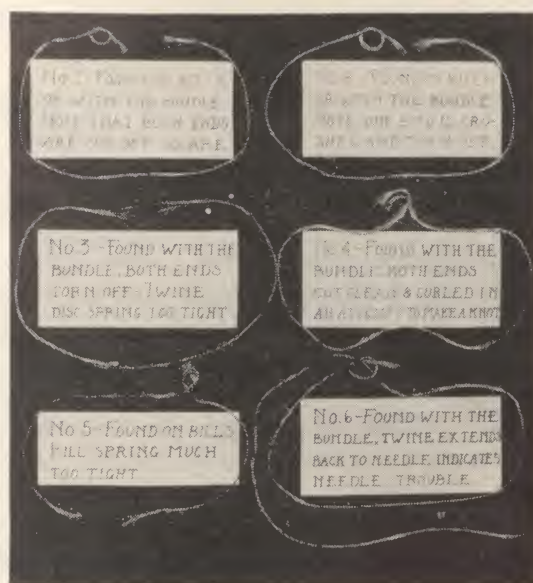 No. 1-FOUND
OR WITH THE BUNDLE
NOTE THAT BOTH ENDS
ARE CUT OFF SQUARE.
OR WITH THE BUNDLE
NOTE ONE END IS
No. 3-FOUND WITH THE
BUNDLE, BOTH ENDS
TORN OFF-TWINE
DISC SPRING TOO TIGHT
No. 4-FOUND WITH THE
BUNDLE BOTH ENDS
CUT CLEAN & CURLED IN
AN ATTEMPT TO MAKE A KNOT
No. 5-FOUND ON BILLS
BILL SPRING MUCH
TOO TIGHT
No. 6-FOUND WITH THE
BUNDLE, TWINE EXTENDS
BACK TO NEEDLE INDICATES
NEEDLE TROUBLE